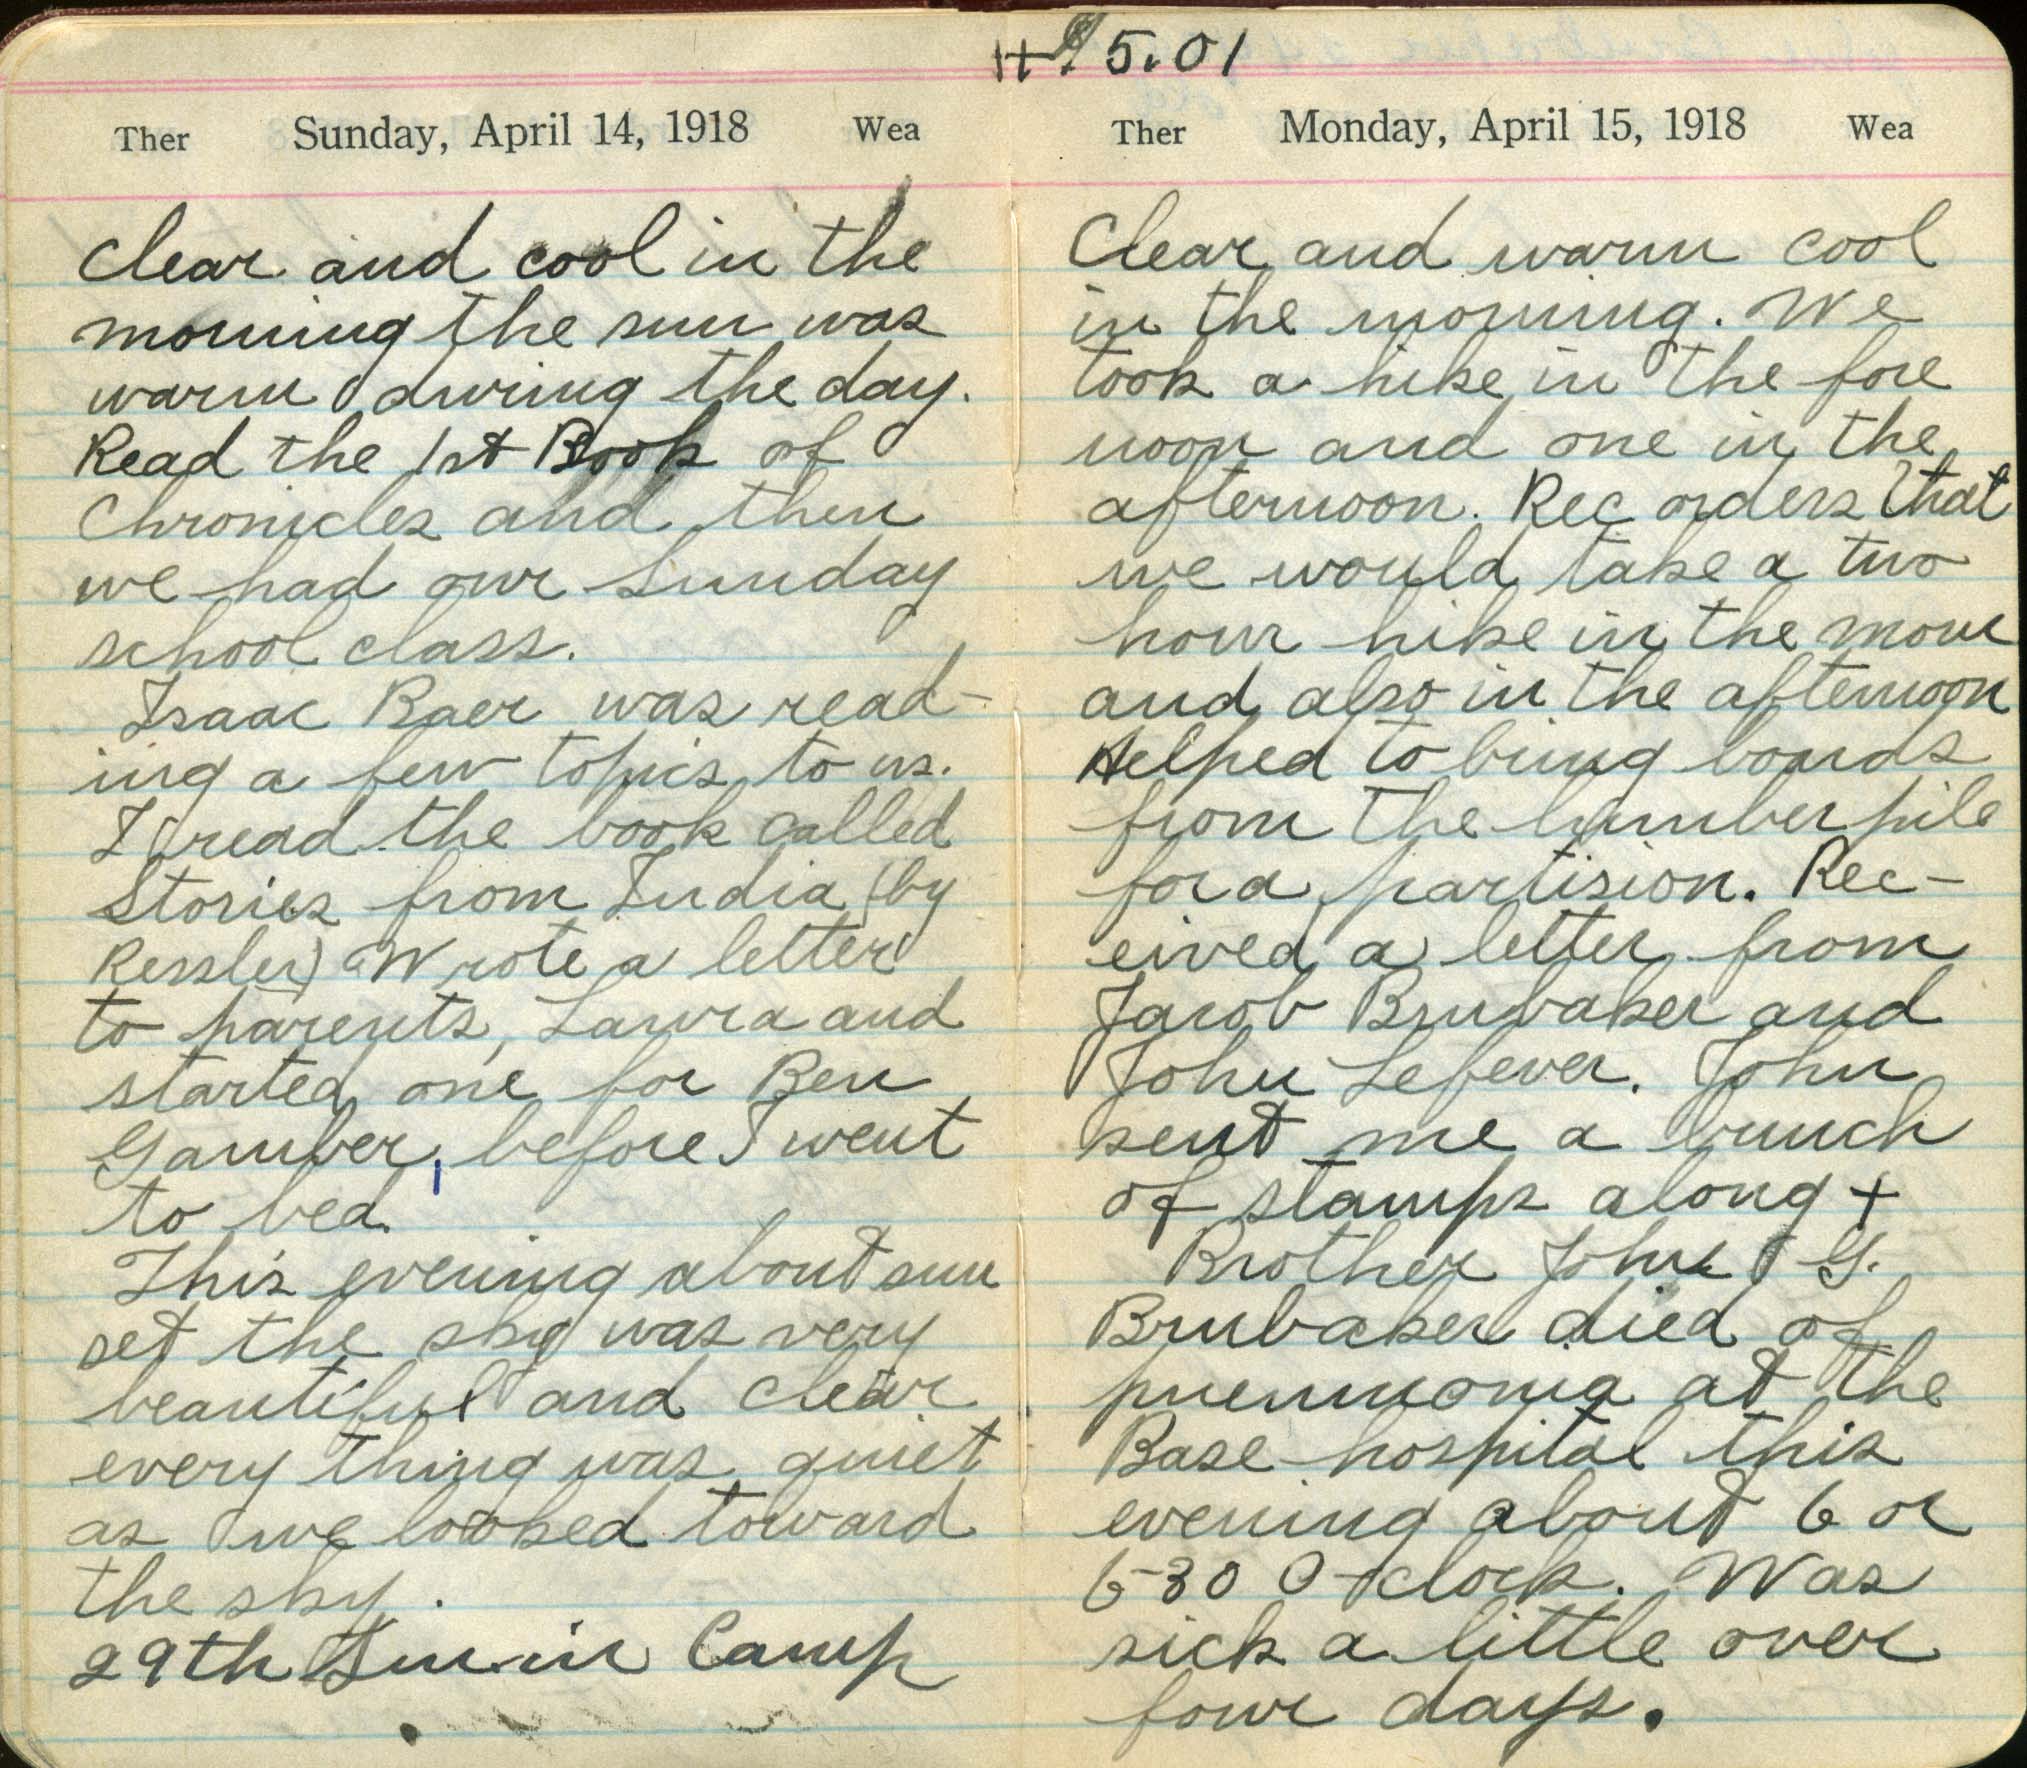 + $5.01
Ther Sunday, April 14, 1918 Wea
Clear and cool in the
morning the sun was
warm during the day.
Read the 1st Book of
Chronicles and then
we had our Sunday
school class.
Isaac Baer was read-
ing a few topics to us.
I read the book called
Stories from India (by
Ressler) Wrote a letter
to parents, Laura and
started one for Ben
Gamber, before I went
to bed.
This evening about sun
set the sky was very
beautiful and clear
every thing was quiet
as we looked toward
the sky.
29th Sun in Camp
Ther Monday, April 15, 1918 Wea
Clear and warm cool
in the morning. We
took a hike in the fore
noon and one in the
afternoon. Rec orders that
we would take a two
hour hike in the morn
and also in the afternoon
Helped to bring boards
from the lumber pile
for a partision. Rec-
eived a letter from
Jacob Brubaker and
John Lefever. John
sent me a bunch
of stamps along +
Brother John G.
Brubaker died of
pneumonia at the
Base hospital this
evening about 6 or
6-30 O-clock. Was
sick a little over
four days.